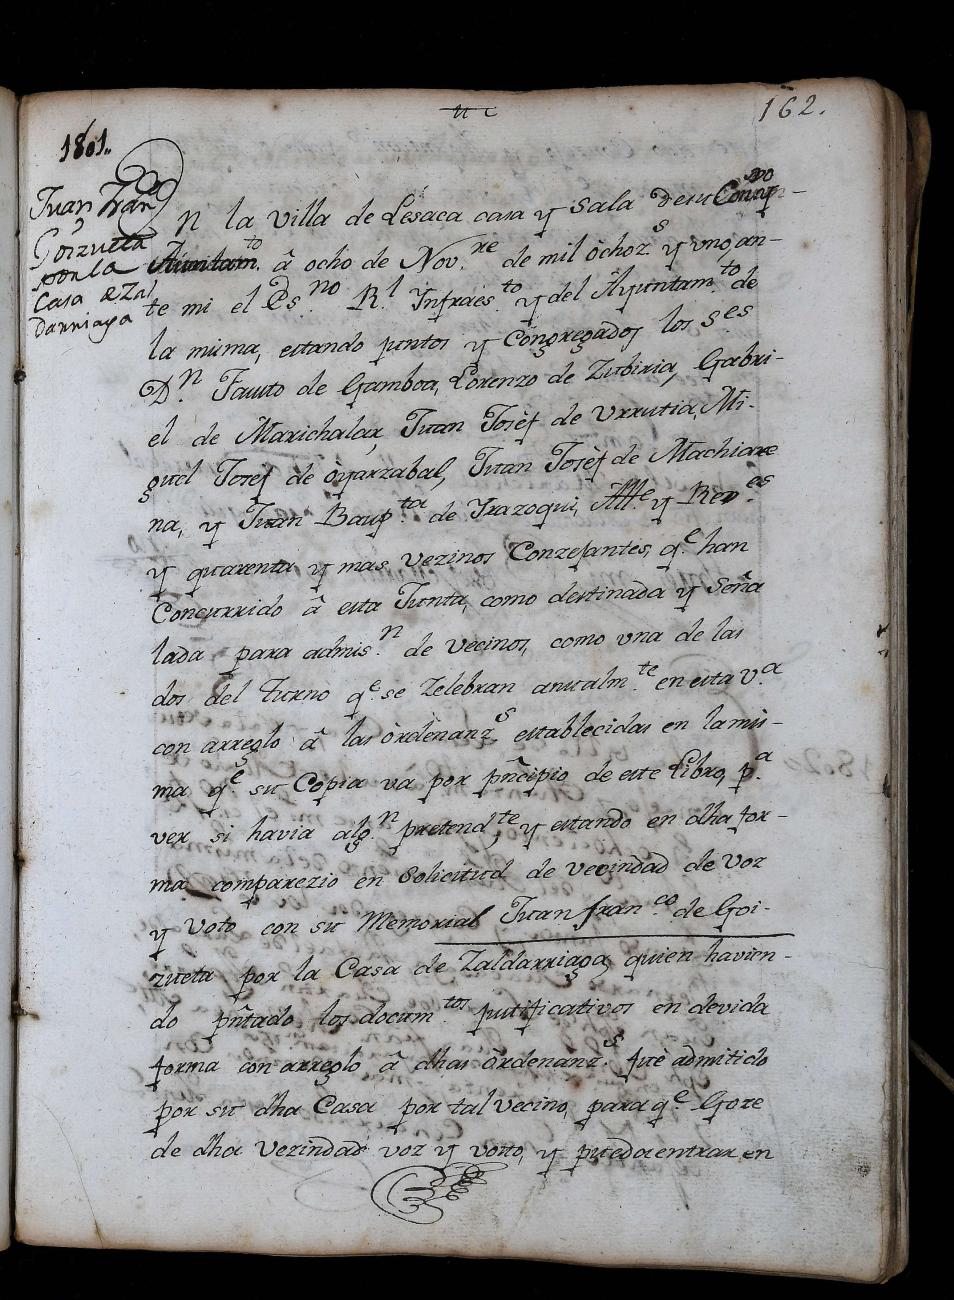 162.
1801.
Juan Fran
Goizueta
por la
Casa de Zal
darriaga
En la villa de Lesaca casa y Sala de su
Aiuntam.to â ocho de Nov.re de mil ôchoz.s y uno, an-
te mi el Es.no R.l Ynfraes.to y del Ayuntam.to de
la misma, estando juntos y Congregados los S.es
D.n Fausto de Gamboa, Lorenzo de Zubiria, Gabri-
el de Marichalar, Juan Josèf de Urrutia, Mi-
guel Josef de òyarzabal, Juan Josèf de Machiare
na, y Juan Baup.ta de Yrazoqui, Alle y Rexes
y quarenta y mas vezinos Conzejantes, q.e han
Concurrido â esta Junta, como destinada y Seña
lada para admis.n de vecinos, como una de las
dos del turno q.e se Zelebran anualm.te en esta V.a
con arreglo â las òrdenanz.s establecidas en la mis-
ma q.e su Copia va por pñcipio de este Libro, p.a
ver si havia alg.n pretend.te, y estando en dha for-
ma comparezio en Solicitud de vecindad de voz
y Voto con su Memorial Juan fran.co de Goi-
zueta por la Casa de Zaldarriaga, quien havien-
do pñtado los docum.tos justificativos en devida
forma con arreglo â dhas òrdenanz.s fue admitido
por su dha Casa por tal vecino, para q.e Goze
de dha Vezindad voz y votto, y pueda entrar en